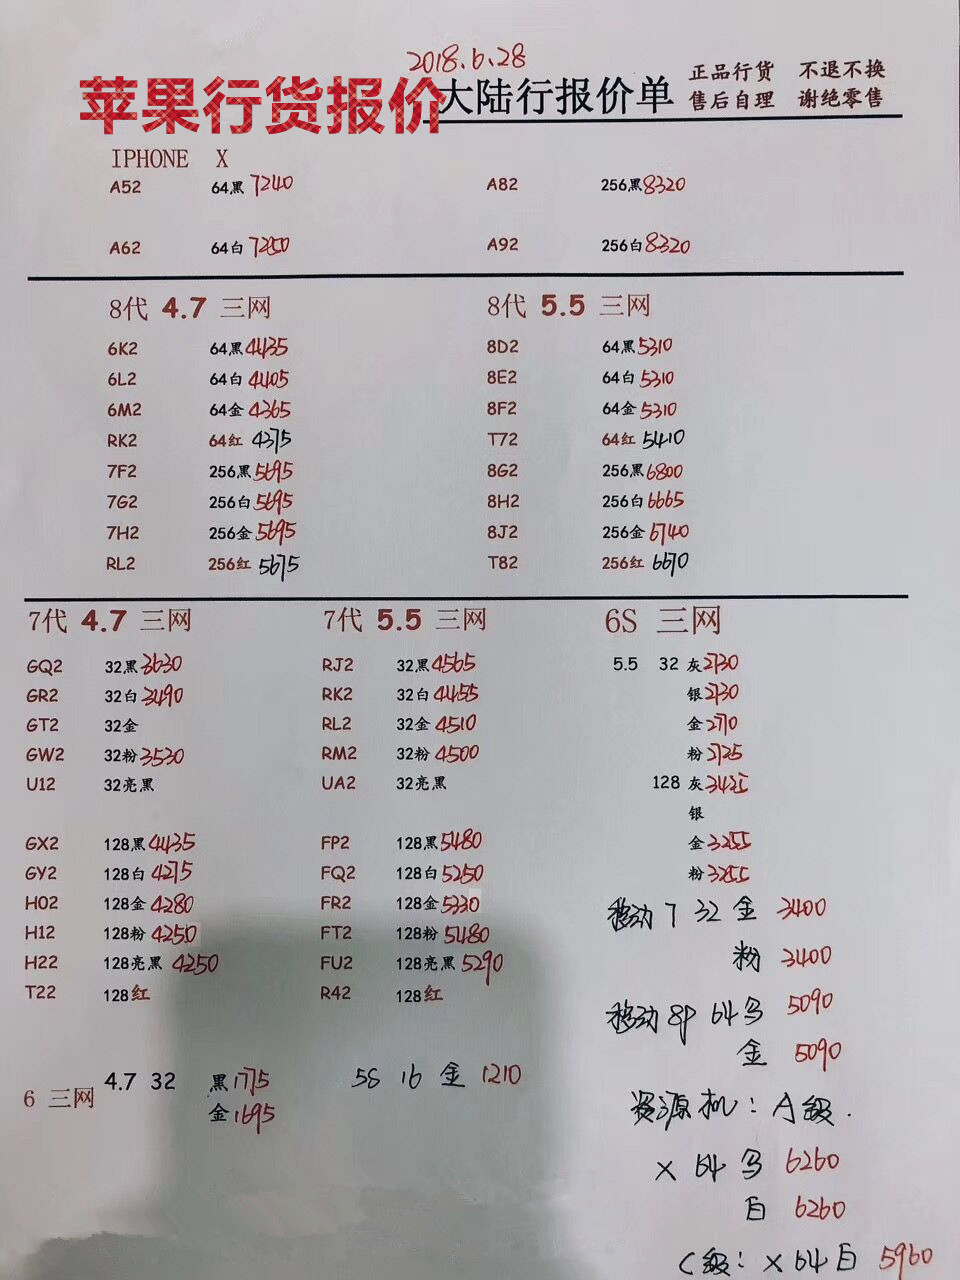 2018.6.28
苹果行货报价
大陆行报价单
正品行货 不退不换
售后自理 谢绝零售
IPHONE X
A52 64黑 7240 A82 256黑 8320
A62 64白 7250 A92 256白 8320
8代 4.7 三网 8代 5.5 三网
6K2 64黑 4435 8D2 64黑 5310
6L2 64白 4405 8E2 64白 5310
6M2 64金 4365 8F2 64金 5310
RK2 64红 4375 T72 64红 5410
7F2 256黑 5695 8G2 256黑 6800
7G2 256白 5695 8H2 256白 6665
7H2 256金 5695 8J2 256金 6740
RL2 256红 5675 T82 256红 6670
7代 4.7 三网 7代 5.5 三网 6S 三网
GQ2 32黑 3630 RJ2 32黑 4565 5.5 32 灰 2730
GR2 32白 3490 RK2 32白 4455 银 2730
GT2 32金 RL2 32金 4510 金 2710
GW2 32粉 3530 RM2 32粉 4500 粉 2725
U12 32亮黑 UA2 32亮黑 128 灰 3425
银
GX2 128黑 4435 FP2 128黑 5480 金 3255
GY2 128白 4275 FQ2 128白 5250 粉 3255
H02 128金 4280 FR2 128金 5330 移动 7 32 金 3400
H12 128粉 4250 FT2 128粉 5480
粉 3400
H22 128亮黑 4250 FU2 128亮黑 5290
T22 128红 R42 128红
移动 8P 64 5090
金 5090
6 三网 4.7 32 黑 1775 5S 16 金 1210
金 1695
资源机：A级.
X 64 6260
白 6260
C级：X 64 白 5960